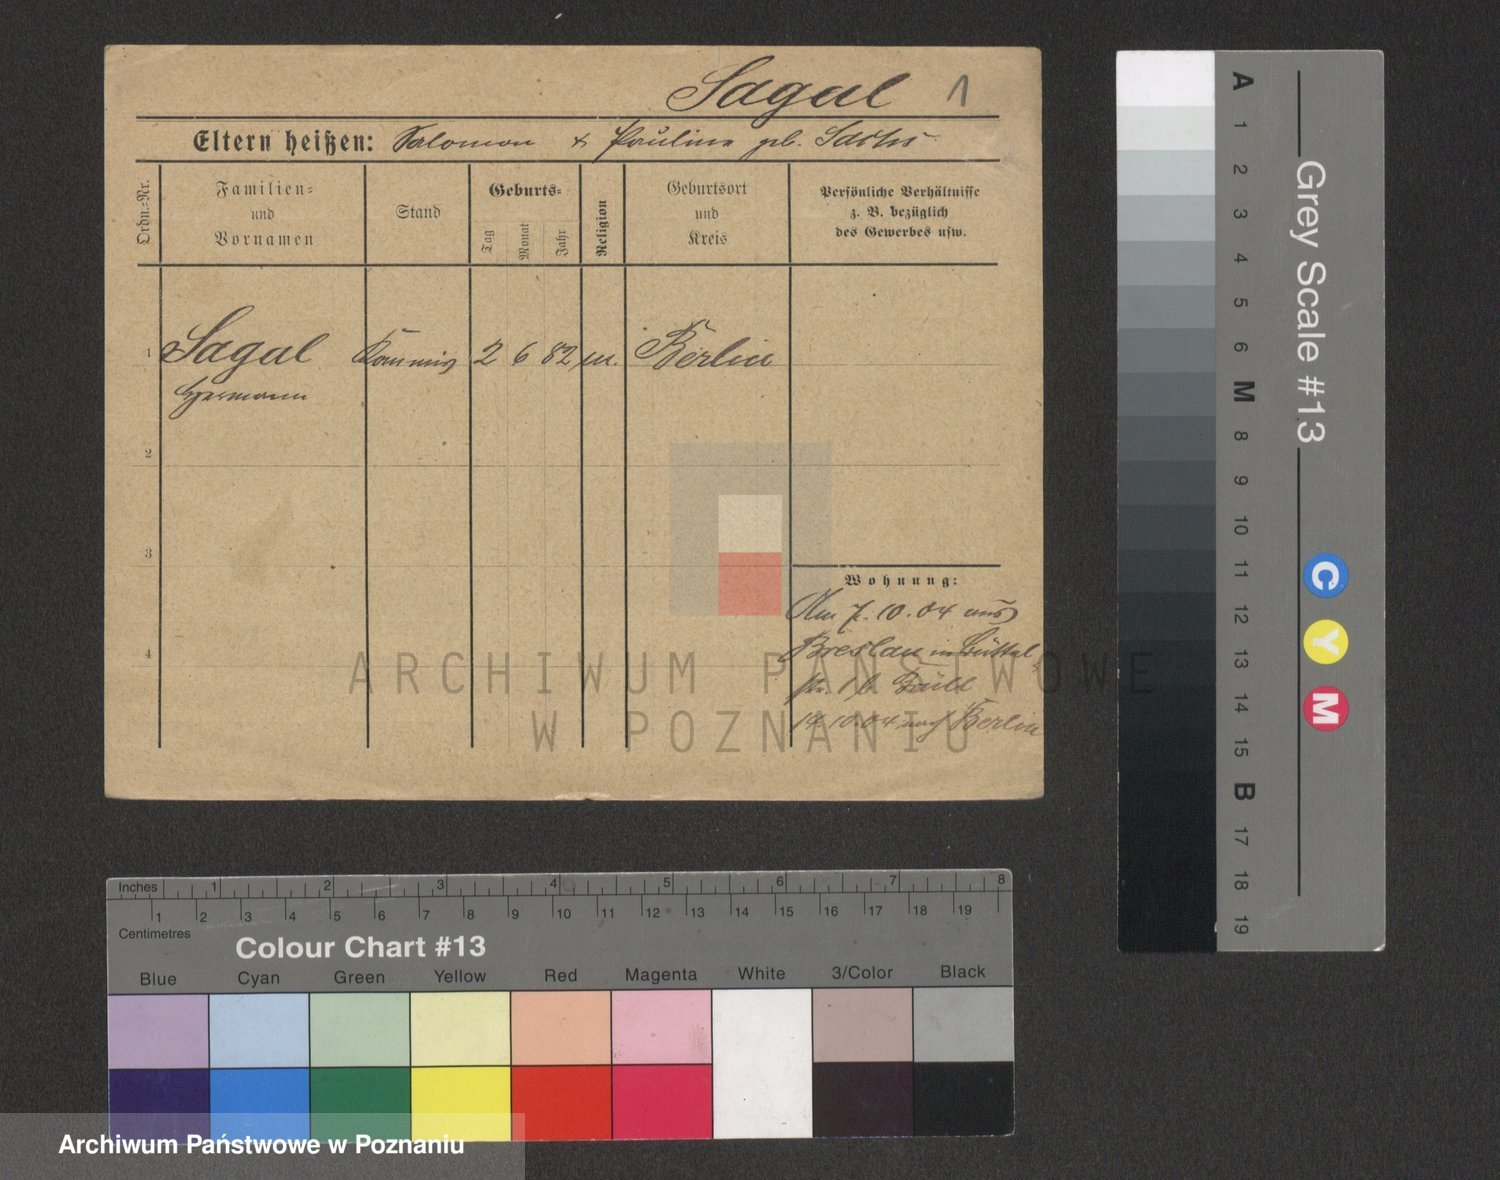 Sagal 1
Eltern heißen: Salomon & Pauline geb. Sachs
Ordn.=Nr.
Familien=
und
Vornamen
Stand
Geburts=
Tag
Monat
Jahr
Religion
Geburtsort
und
Kreis
Persönliche Verhältnisse
z. B. bezüglich
des Gewerbes usw.
1 Sagal Kommis 2 6 82 m. Berlin
Hermann
2
3
4
Wohnung:
Am 7.10.04 aus
Breslau
14.10.04 nach Berlin
ARCHIWUM PAŃSTWOWE
W POZNANIU
Grey Scale #13
A 1 2 3 4 5 6 M 8 9 10 11 12 13 14 15 B 17 18 19
C Y M
Inches 1 2 3 4 5 6 7 8
1 2 3 4 5 6 7 8 9 10 11 12 13 14 15 16 17 18 19
Centimetres
Colour Chart #13
Blue Cyan Green Yellow Red Magenta White 3/Color Black
Archiwum Państwowe w Poznaniu